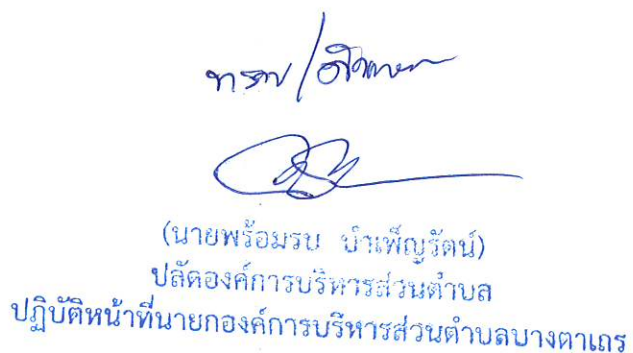 ทราบ/
(นายพร้อมรบ บำเพ็ญรัตน์)
ปลัดองค์การบริหารส่วนตำบล
ปฏิบัติหน้าที่นายกองค์การบริหารส่วนตำบลบางตาเถร